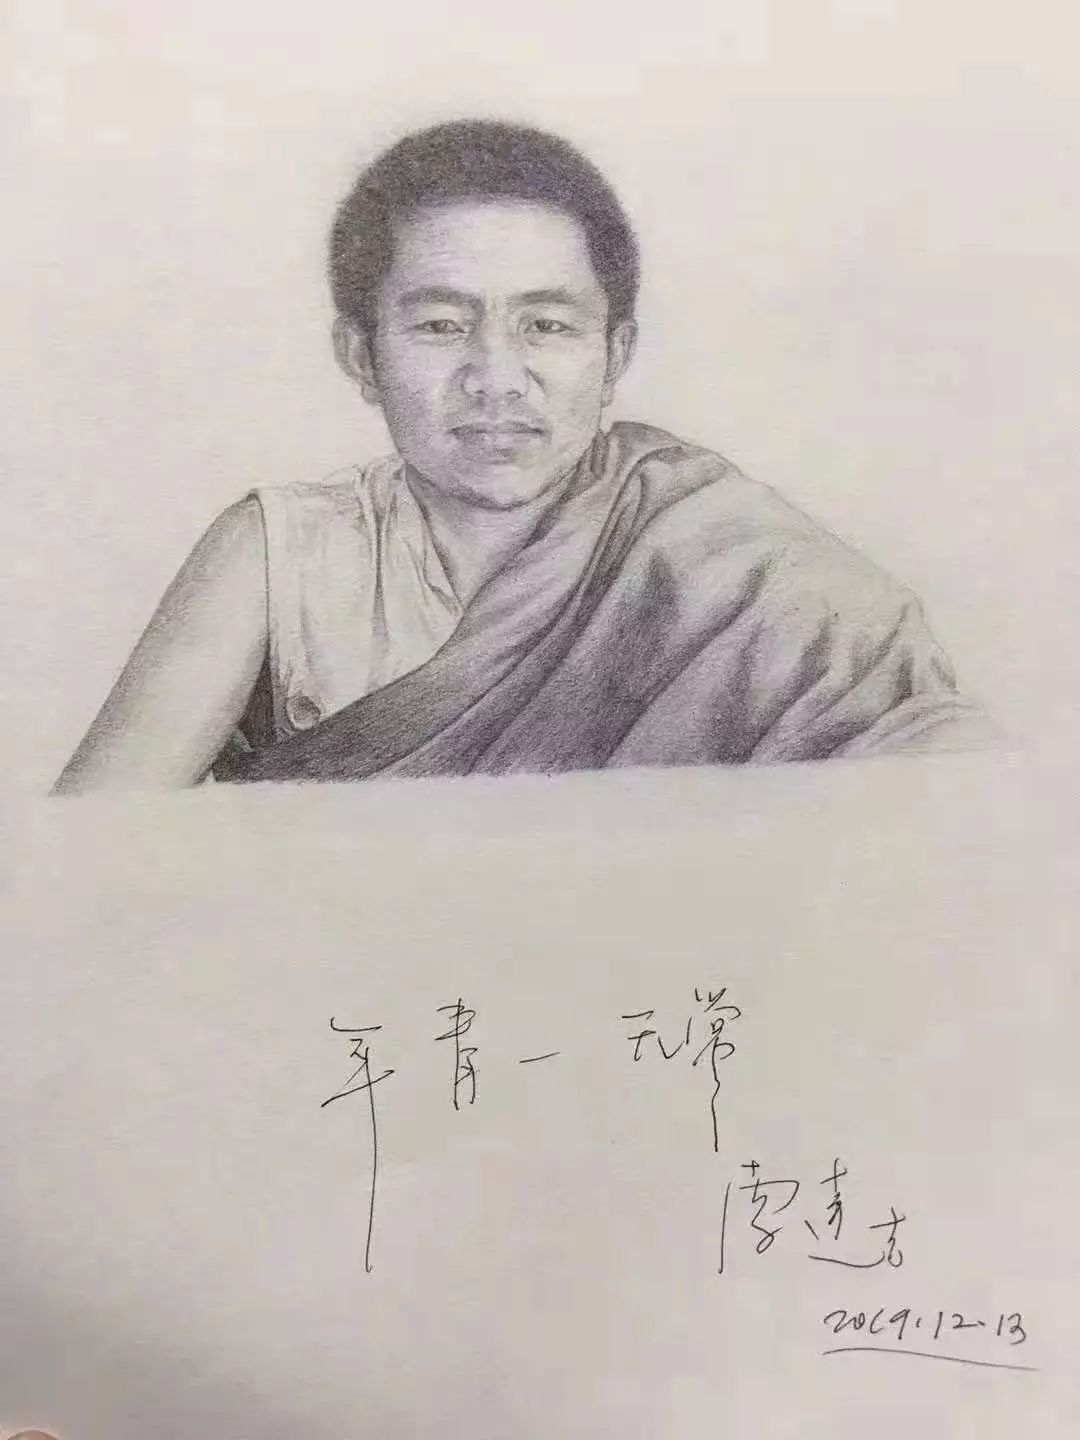 年青一无常
索达吉
2019.12.13